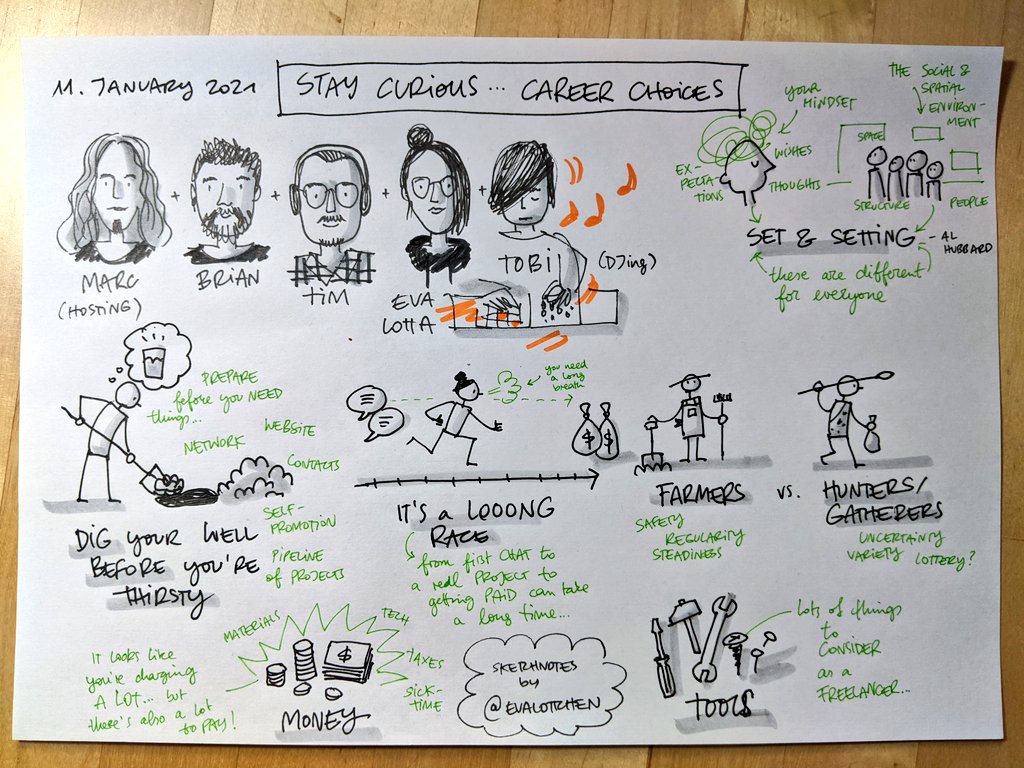 11. JANUARY 2021
STAY CURIOUS... CAREER CHOICES
MARC
(HOSTING)
+
BRIAN
+
TIM
+
EVA
LOTTA
+
TOBI
(DJing)
YOUR
MINDSET
WISHES
EX-
PECTA-
TIONS
THOUGHTS
THE SOCIAL &
SPATIAL
ENVIRON-
MENT
SPACE
STRUCTURE
PEOPLE
SET & SETTING
- AL
HUBBARD
these are different
for everyone
PREPARE
before you NEED
things...
NETWORK
WEBSITE
CONTACTS
SELF-
PROMOTION
PIPELINE
OF PROJECTS
DIG YOUR WELL
BEFORE YOU'RE
THIRSTY
you need
a long
breath
$ $
IT'S A LOOONG
RACE
from first CHAT to
a real PROJECT to
getting PAID can take
a long time...
FARMERS
vs.
HUNTERS/
GATHERERS
SAFETY
REGULARITY
STEADINESS
UNCERTAINTY
VARIETY
LOTTERY?
IT LOOKS LIKE
you're charging
A LOT... but
there's also a lot
to PAY!
MATERIALS
TECH
TAXES
SICK-
TIME
$
MONEY
SKETCHNOTES
by
@EVALOTCHEN
TOOLS
Lots of things
to
CONSIDER
as a
FREELANCER...